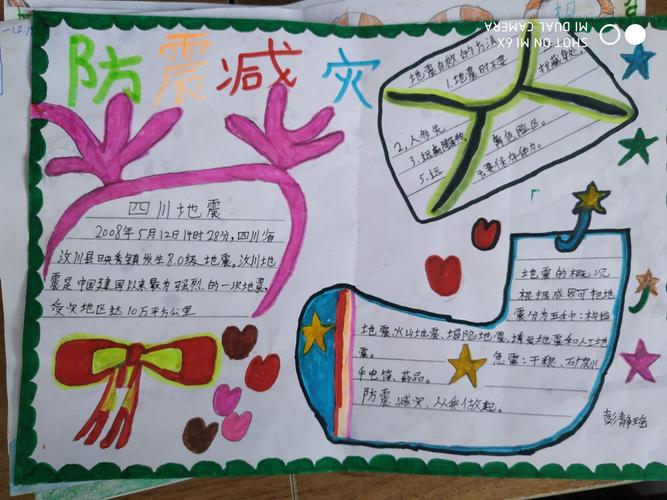 防震减灾
SHOT ON MI 6X
MI DUAL CAMERA
地震自救的方法
1.地震时不要
2.人多先
找藏身处
3.远离
离危险区。
5.远
四川地震
2008年5月12日14时28分,四川省
汶川县映秀镇发生8.0级地震。汶川地
震是中国建国以来最为强烈的一次地震,
受灾地区达10万平方公里
地震的概况
根据成因可把地
震分为五种:构造
地震、火山地震、塌陷地震、诱发地震和人工地
震。
急需:干粮、矿泉水
手电筒、药品。
防震减灾,从我做起。
彭静瑶